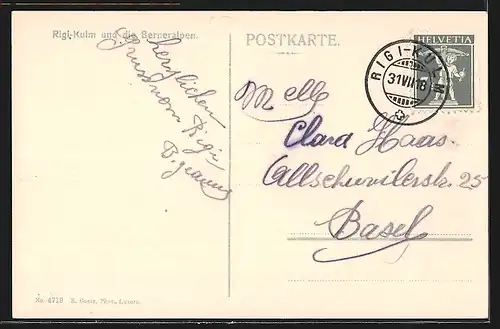 Rigi-Kulm und die Berneralpen.
POSTKARTE.
HELVETIA
RIGI-KULM
31 VII 18
herzlichen
Gruss vom Rigi
Melle
Clara Haas
Allschwilerstr. 25
Basel
No. 4718
Luzern.